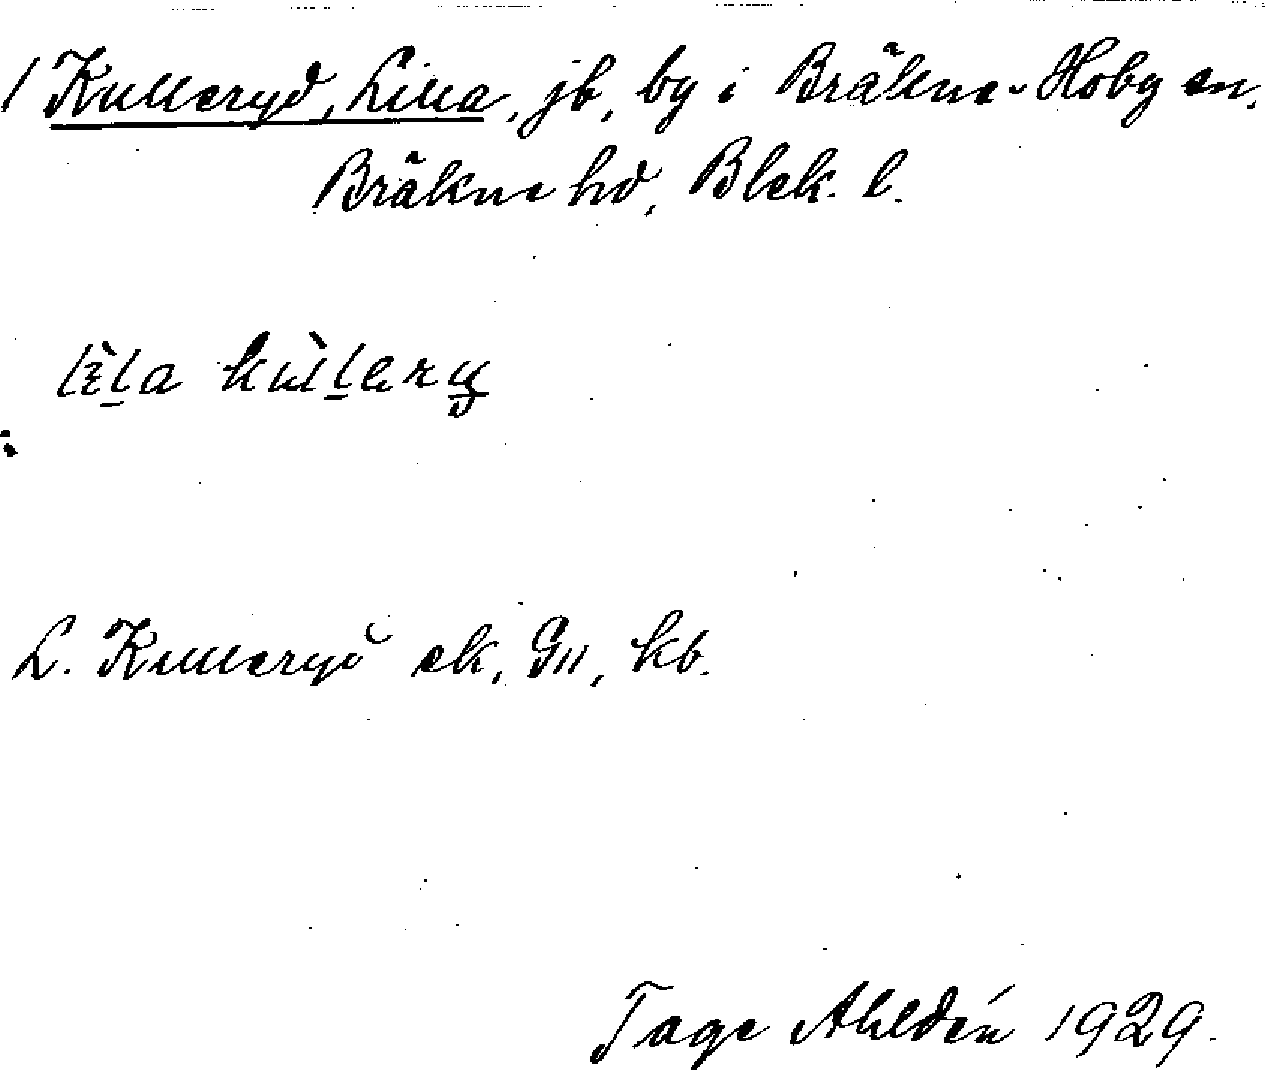 1 Kulleryd, Lilla, jb, by i Bräkne-Hoby sn,
Bräkne hd, Blek. l.
L. Kulleryd ek, G11, kb.
Tage Ahldén 1929.